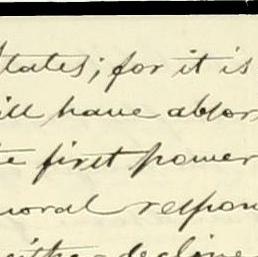 States; for it is
ill have absor
te first power
moral respon
decline